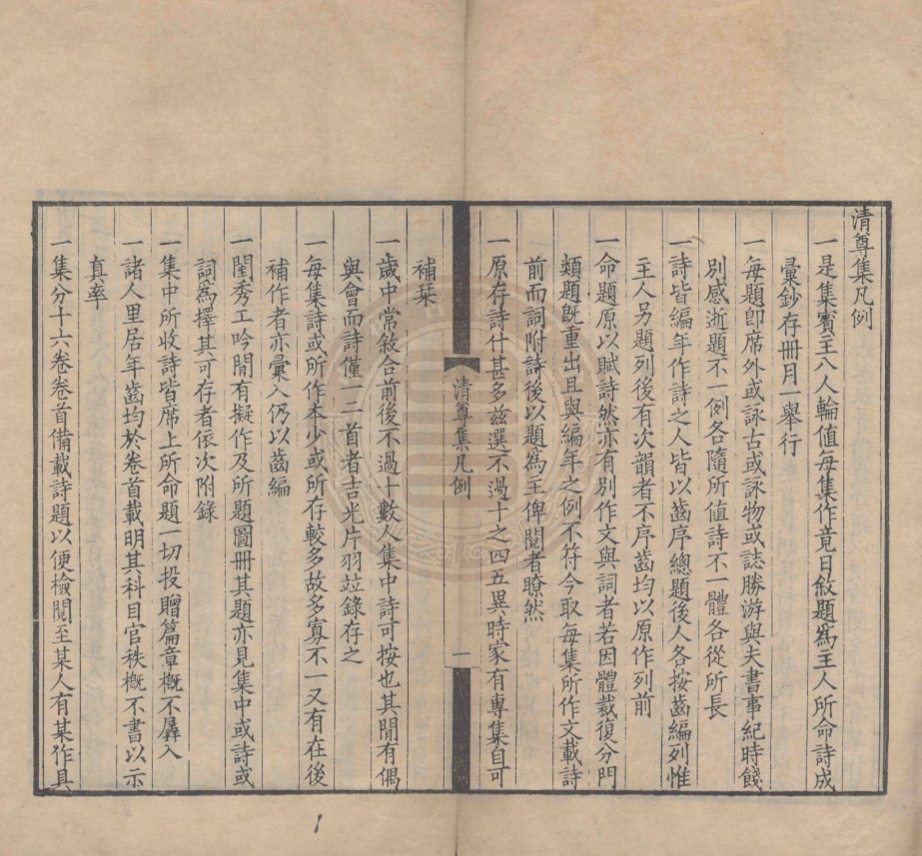 清尊集凡例
一是集賓主八人輪值每集作竟日敘題為主人所命詩成
彙鈔存冊月一舉行
一每題卽席外或詠古或詠物或誌勝游與夫書事紀時餞
別感逝題不一例各隨所值詩不一體各從所長
一詩皆編年作詩之人皆以齒序總題後人各按齒編列惟
主人另題列後有次韻者不序齒均以原作列前
一命題原以賦詩然亦有別作文與詞者若因體裁復分門
類題旣重出且與編年之例不符今取每集所作文載詩
前而詞附詩後以題為主俾閱者瞭然
一原存詩什甚多茲選不過十之四五異時家有專集自可
清尊集凡例
一
補栞
一歲中常敘合前後不過十數人集中詩可按也其閒有偶
與會而詩僅一二首者吉光片羽竝錄存之
一每集詩或所作本少或所存較多故多寡不一又有在後
補作者亦彙入仍以齒編
一閨秀工吟閒有擬作及所題圖冊其題亦見集中或詩或
詞為擇其可存者依次附錄
一集中所收詩皆席上所命題一切投贈篇章概不羼入
一諸人里居年齒均於卷首載明其科目官秩概不書以示
真率
一集分十六卷卷首備載詩題以便檢閱至某人有某作具